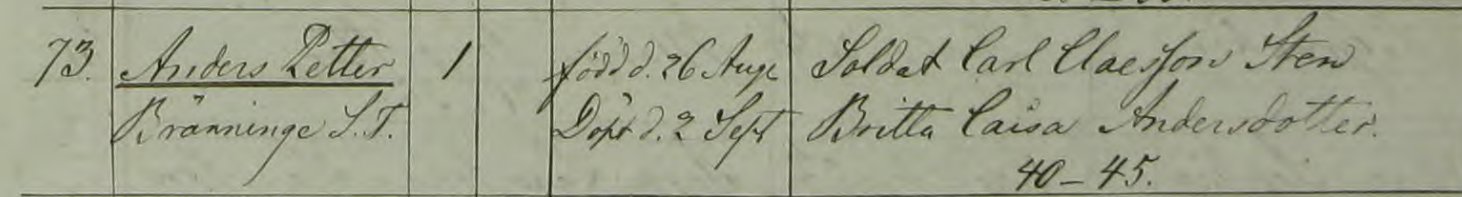 73. Anders Petter 1 född d. 26 Aug Soldat Carl Claesson Sten
Bränninge S.T. Döpt d. 2 Sept Britta Caisa Andersdotter.
40–45.